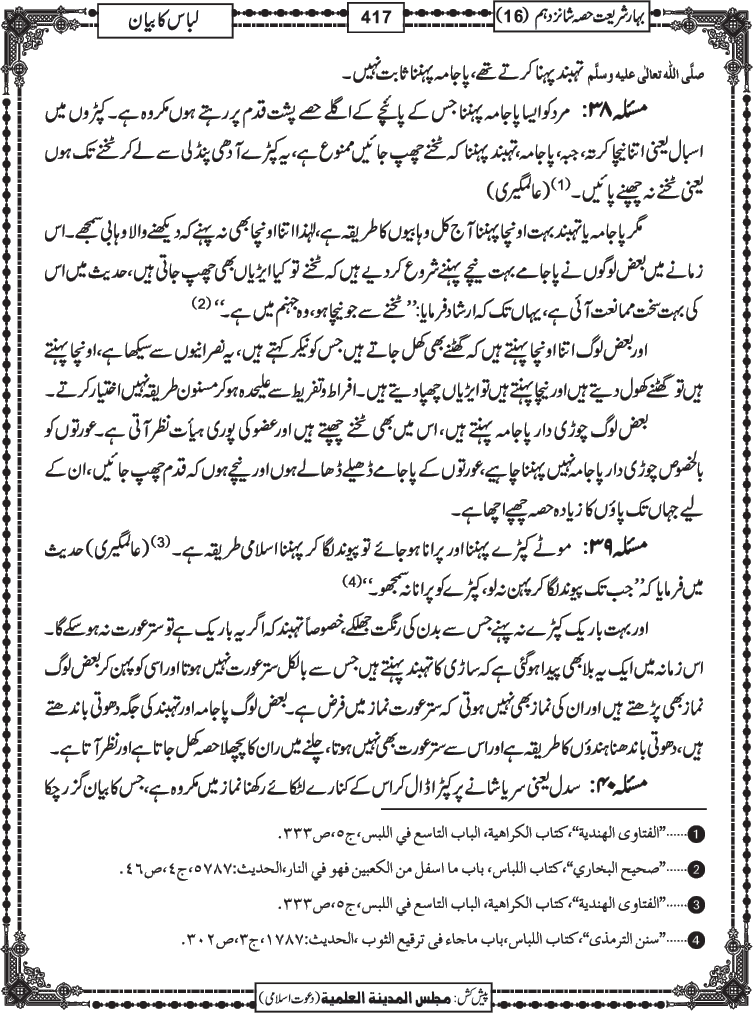 بہار شریعت حصہ شانزدہم (16)
417
لباس کا بیان
صلَّی اللہ تعالٰی علیہ وسلَّم تہبند پہنا کرتے تھے، پاجامہ پہننا ثابت نہیں۔
مسئلہ ۳۸: مرد کو ایسا پاجامہ پہننا جس کے پائنچے کے اگلے حصے پشت قدم پر رہتے ہوں مکروہ ہے۔ کپڑوں میں
اسبال یعنی اتنا نیچا کرتہ، جبہ، پاجامہ، تہبند پہننا کہ ٹخنے چھپ جائیں ممنوع ہے، یہ کپڑے آدھی پنڈلی سے لے کر ٹخنے تک ہوں
یعنی ٹخنے نہ چھپنے پائیں۔ (1) (عالمگیری)
مگر پاجامہ یا تہبند بہت اونچا پہننا آج کل وہابیوں کا طریقہ ہے، لہٰذا اتنا اونچا بھی نہ پہنے کہ دیکھنے والا وہابی سمجھے۔ اس
زمانے میں بعض لوگوں نے پاجامے بہت نیچے پہننے شروع کر دیے ہیں کہ ٹخنے تو کیا ایڑیاں بھی چھپ جاتی ہیں، حدیث میں اس
کی بہت سخت ممانعت آئی ہے، یہاں تک کہ ارشاد فرمایا: ’’ٹخنے سے جو نیچا ہو، وہ جہنم میں ہے۔‘‘ (2)
اور بعض لوگ اتنا اونچا پہنتے ہیں کہ گھٹنے بھی کھل جاتے ہیں جس کو نیکر کہتے ہیں، یہ نصرانیوں سے سیکھا ہے، اونچا پہنتے
ہیں تو گھٹنے کھول دیتے ہیں اور نیچا پہنتے ہیں تو ایڑیاں چھپا دیتے ہیں۔ افراط و تفریط سے علیحدہ ہو کر مسنون طریقہ نہیں اختیار کرتے۔
بعض لوگ چوڑی دار پاجامہ پہنتے ہیں، اس میں بھی ٹخنے چھپتے ہیں اور عضو کی پوری ہیأت نظر آتی ہے۔ عورتوں کو
بالخصوص چوڑی دار پاجامہ نہیں پہننا چاہیے، عورتوں کے پاجامے ڈھیلے ڈھالے ہوں اور نیچے ہوں کہ قدم چھپ جائیں، ان کے
لیے جہاں تک پاؤں کا زیادہ حصہ چھپے اچھا ہے۔
مسئلہ ۳۹: موٹے کپڑے پہننا اور پرانا ہو جائے تو پیوند لگا کر پہننا اسلامی طریقہ ہے۔ (3) (عالمگیری) حدیث
میں فرمایا کہ ’’جب تک پیوند لگا کر پہن نہ لو، کپڑے کو پرانا نہ سمجھو۔‘‘ (4)
اور بہت باریک کپڑے نہ پہنے جس سے بدن کی رنگت جھلکے، خصوصاً تہبند کہ اگر یہ باریک ہے تو ستر عورت نہ ہو سکے گا۔
اس زمانہ میں ایک یہ بلا بھی پیدا ہوگئی ہے کہ ساڑی کا تہبند پہنتے ہیں جس سے بالکل ستر عورت نہیں ہوتا اور اسی کو پہن کر بعض لوگ
نماز بھی پڑھتے ہیں اور ان کی نماز بھی نہیں ہوتی کہ ستر عورت نماز میں فرض ہے۔ بعض لوگ پاجامہ اور تہبند کی جگہ دھوتی باندھتے
ہیں، دھوتی باندھنا ہندؤوں کا طریقہ ہے اور اس سے ستر عورت بھی نہیں ہوتا، چلنے میں ران کا پچھلا حصہ کھل جاتا ہے اور نظر آتا ہے۔
مسئلہ ۴۰: سدل یعنی سر یا شانے پر کپڑا ڈال کر اس کے کنارے لٹکائے رکھنا نماز میں مکروہ ہے، جس کا بیان گزر چکا
1 ......”الفتاوى الهندية“، كتاب الكراهية، الباب التاسع في اللبس، ج٥، ص٣٣٣.
2 ......”صحيح البخاري“، كتاب اللباس، باب ما اسفل من الكعبين فهو في النار، الحديث: ٥٧٨٧، ج٤، ص٤٦.
3 ......”الفتاوى الهندية“، كتاب الكراهية، الباب التاسع في اللبس، ج٥، ص٣٣٣.
4 ......”سنن الترمذى“، كتاب اللباس، باب ماجاء فى ترقيع الثوب، الحديث: ١٧٨٧، ج٣، ص٣٠٢.
پیش کش: مجلس المدینۃ العلمیۃ (دعوت اسلامی)